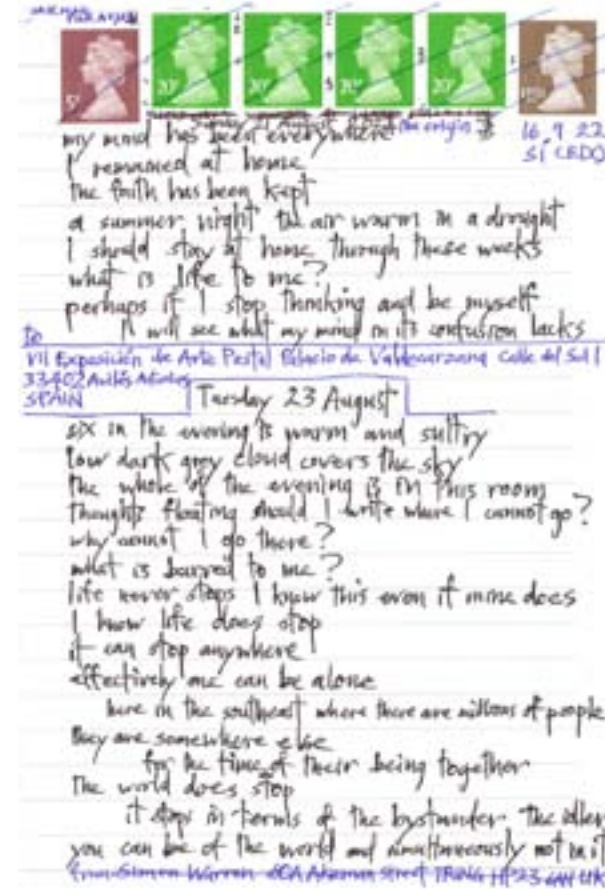 5p 20p 20p 20p 20p
my mind has been everywhere the origin
16.9.22
I remained at home
the faith has been kept
a summer night the air warm in a drought
I should stay at home through these weeks
what is life to me?
perhaps if I stop thinking and be myself
I will see what my mind in its confusion lacks
to
VII Exposición de Arte Postal Palacio de Valdecarzana Calle del Sol 1
33402 Avilés Asturias
SPAIN
Tuesday 23 August
six in the evening is warm and sultry
low dark grey cloud covers the sky
the whole of the evening is in this room
thoughts floating should I write where I cannot go?
why cannot I go there?
what is barred to me?
life never stops I know this even if mine does
I know life does stop
it can stop anywhere
effectively one can be alone
here in the southeast where there are millions of people
they are somewhere else
for the time of their being together
the world does stop
it stops in terms of the bystander the idler
you can be of the world and simultaneously not in it
from Simon Warren Akeman Street TRING HP23 UK